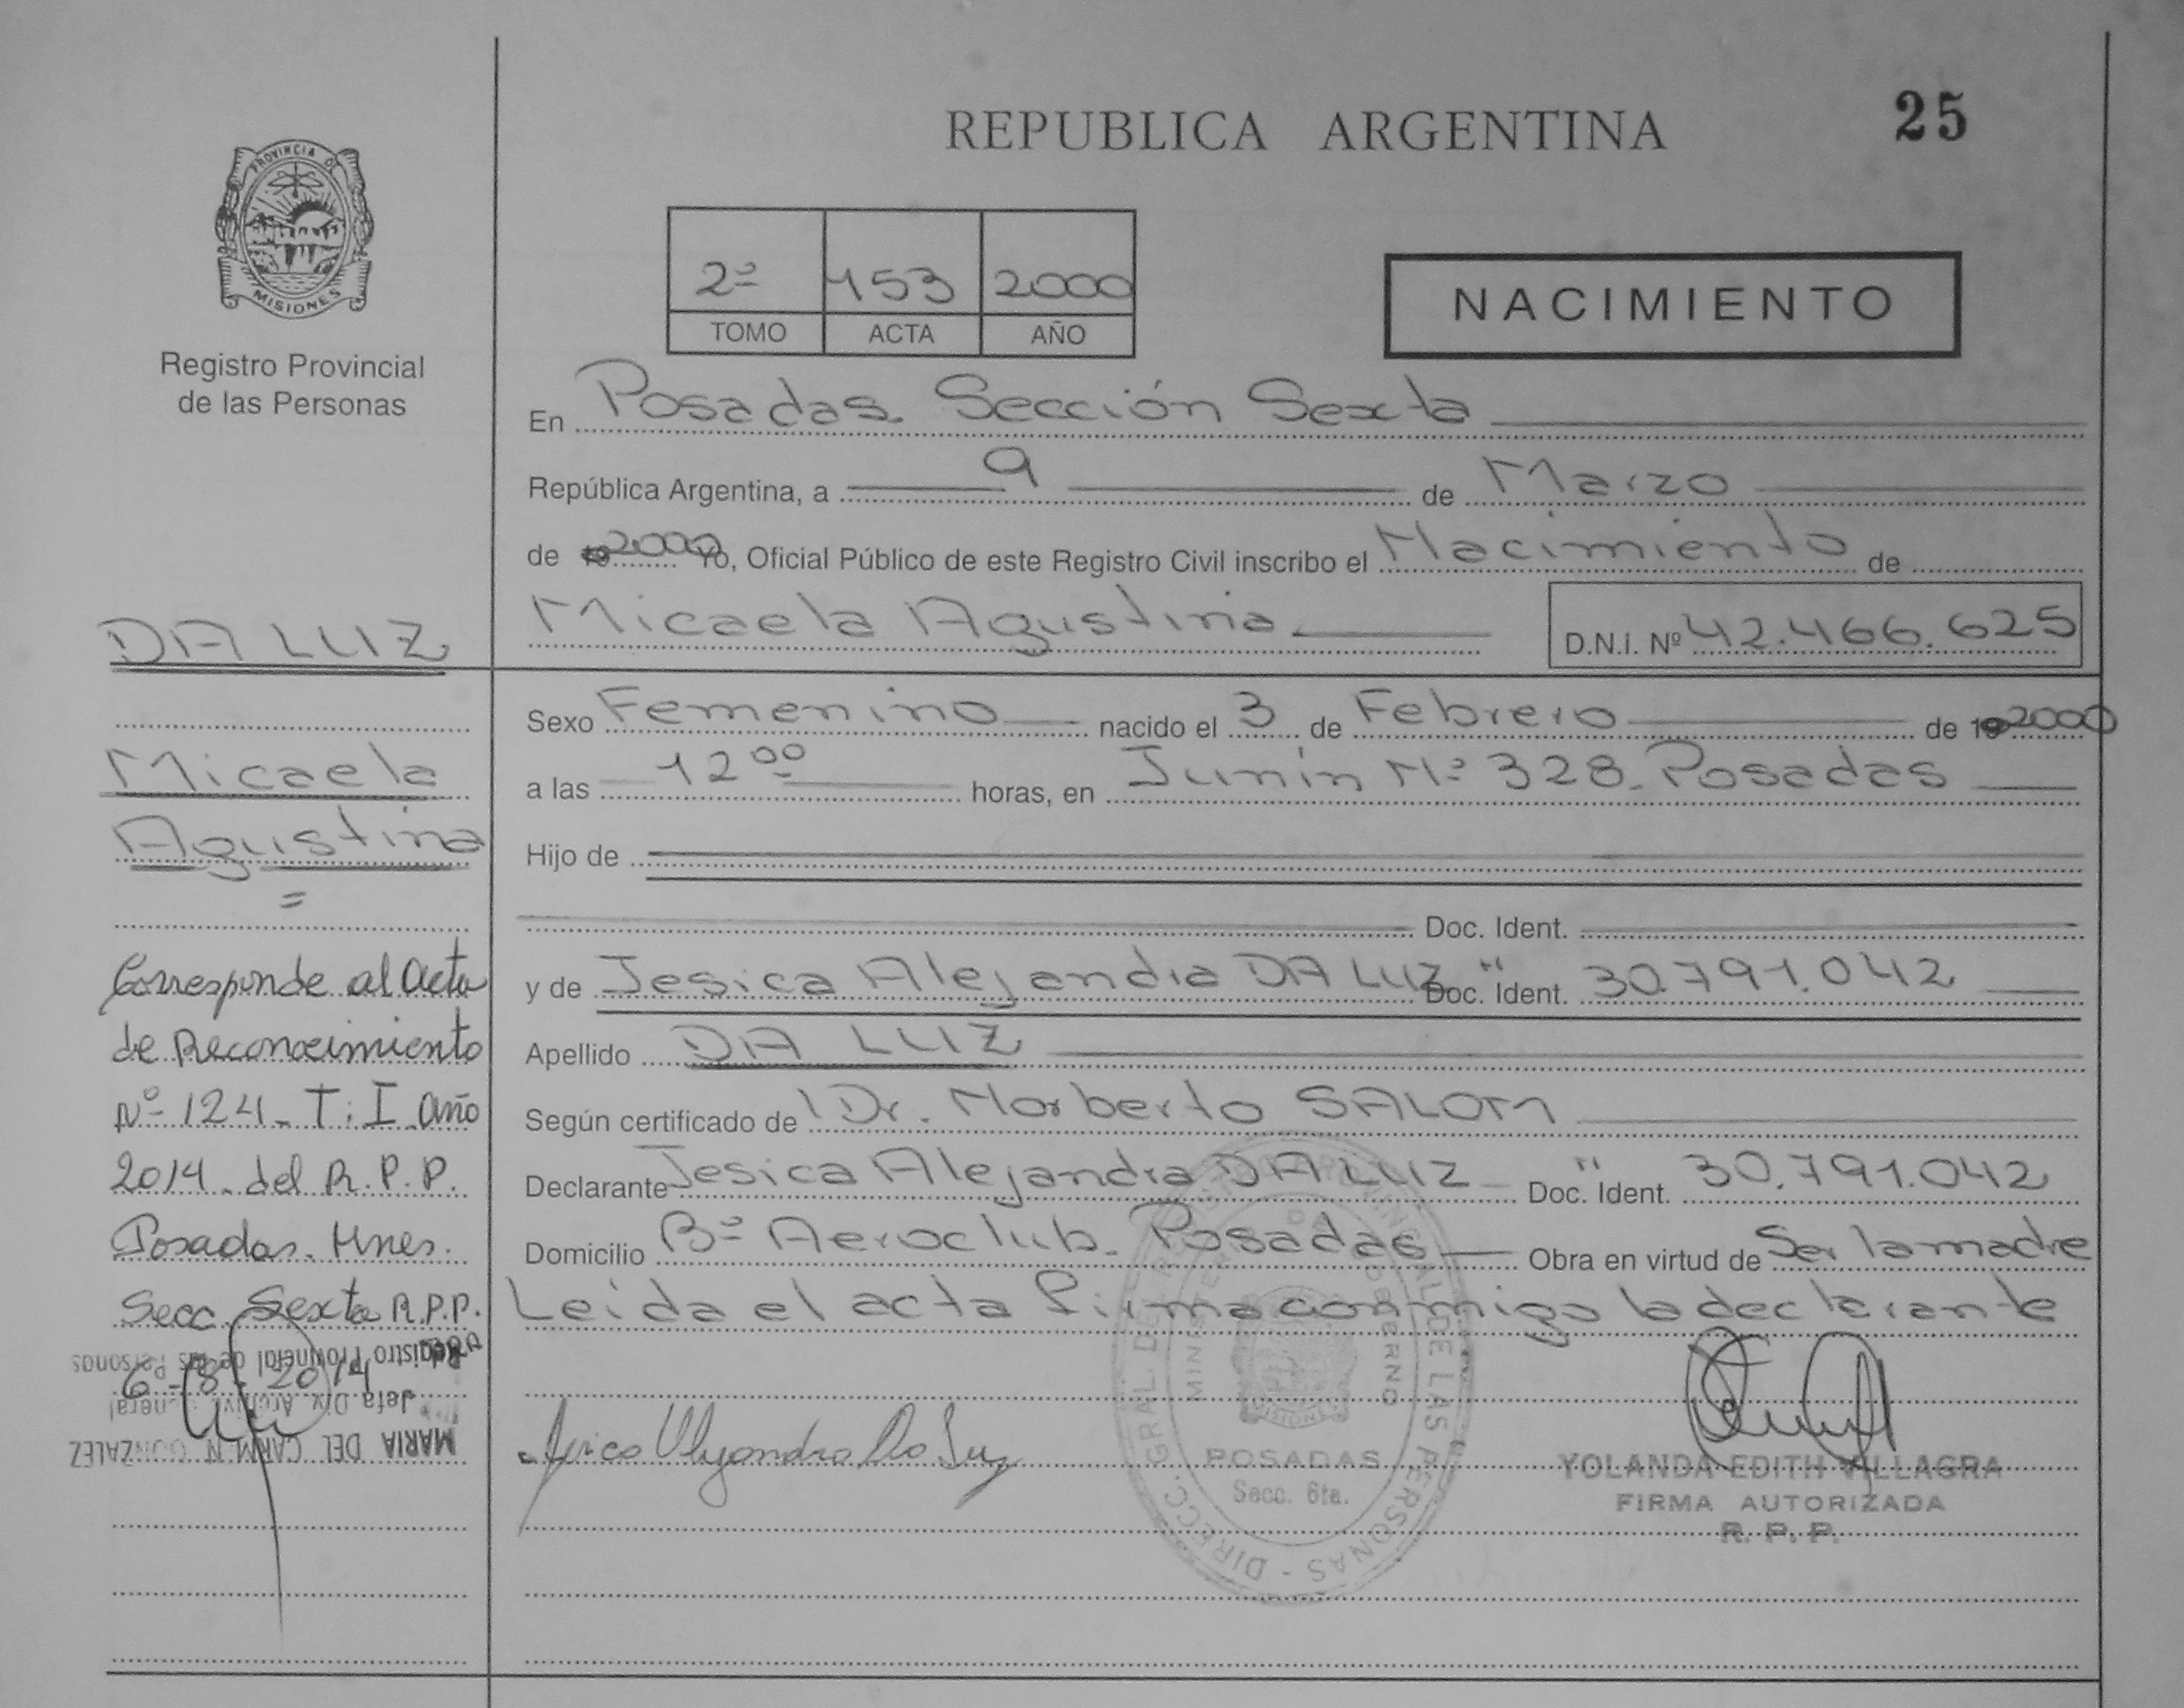 REPUBLICA ARGENTINA
25
PROVINCIA D
MISIONES
Registro Provincial
de las Personas
2º 153 2000
TOMO ACTA AÑO
NACIMIENTO
En Posadas. Sección Sexta
República Argentina, a 9 de Marzo
de 19 2000 Yo, Oficial Público de este Registro Civil inscribo el Nacimiento de
Micaela Agustina D.N.I. Nº 42.466.625
Sexo Femenino nacido el 3 de Febrero de 19 2000
a las 12 00 horas, en Junín Nº 328. Posadas
Hijo de
Doc. Ident.
y de Jesica Alejandra DA LUZ Doc. Ident. " 30.791.042
Apellido DA LUZ
Según certificado de Dr. Norberto SALOM
Declarante Jesica Alejandra DA LUZ Doc. Ident. " 30.791.042
Domicilio Bº Aeroclub. Posadas Obra en virtud de Ser la madre
Leida el acta firma conmigo la declarante
YOLANDA EDITH VILLAGRA
FIRMA AUTORIZADA
R. P. P.
POSADAS
Secc. 6ta.
MISIONES
DA LUZ
Micaela
Agustina
=
Corresponde al Acta
de Reconocimiento
Nº 124 - T: I Año
2014 - del R. P. P.
Posadas. Mnes.
Secc. Sexta R.P.P.
6 - 8 - 2014
MARIA DEL CARMEN GONZALEZ
Jefa Div. Archivo General
Registro Provincial de las Personas